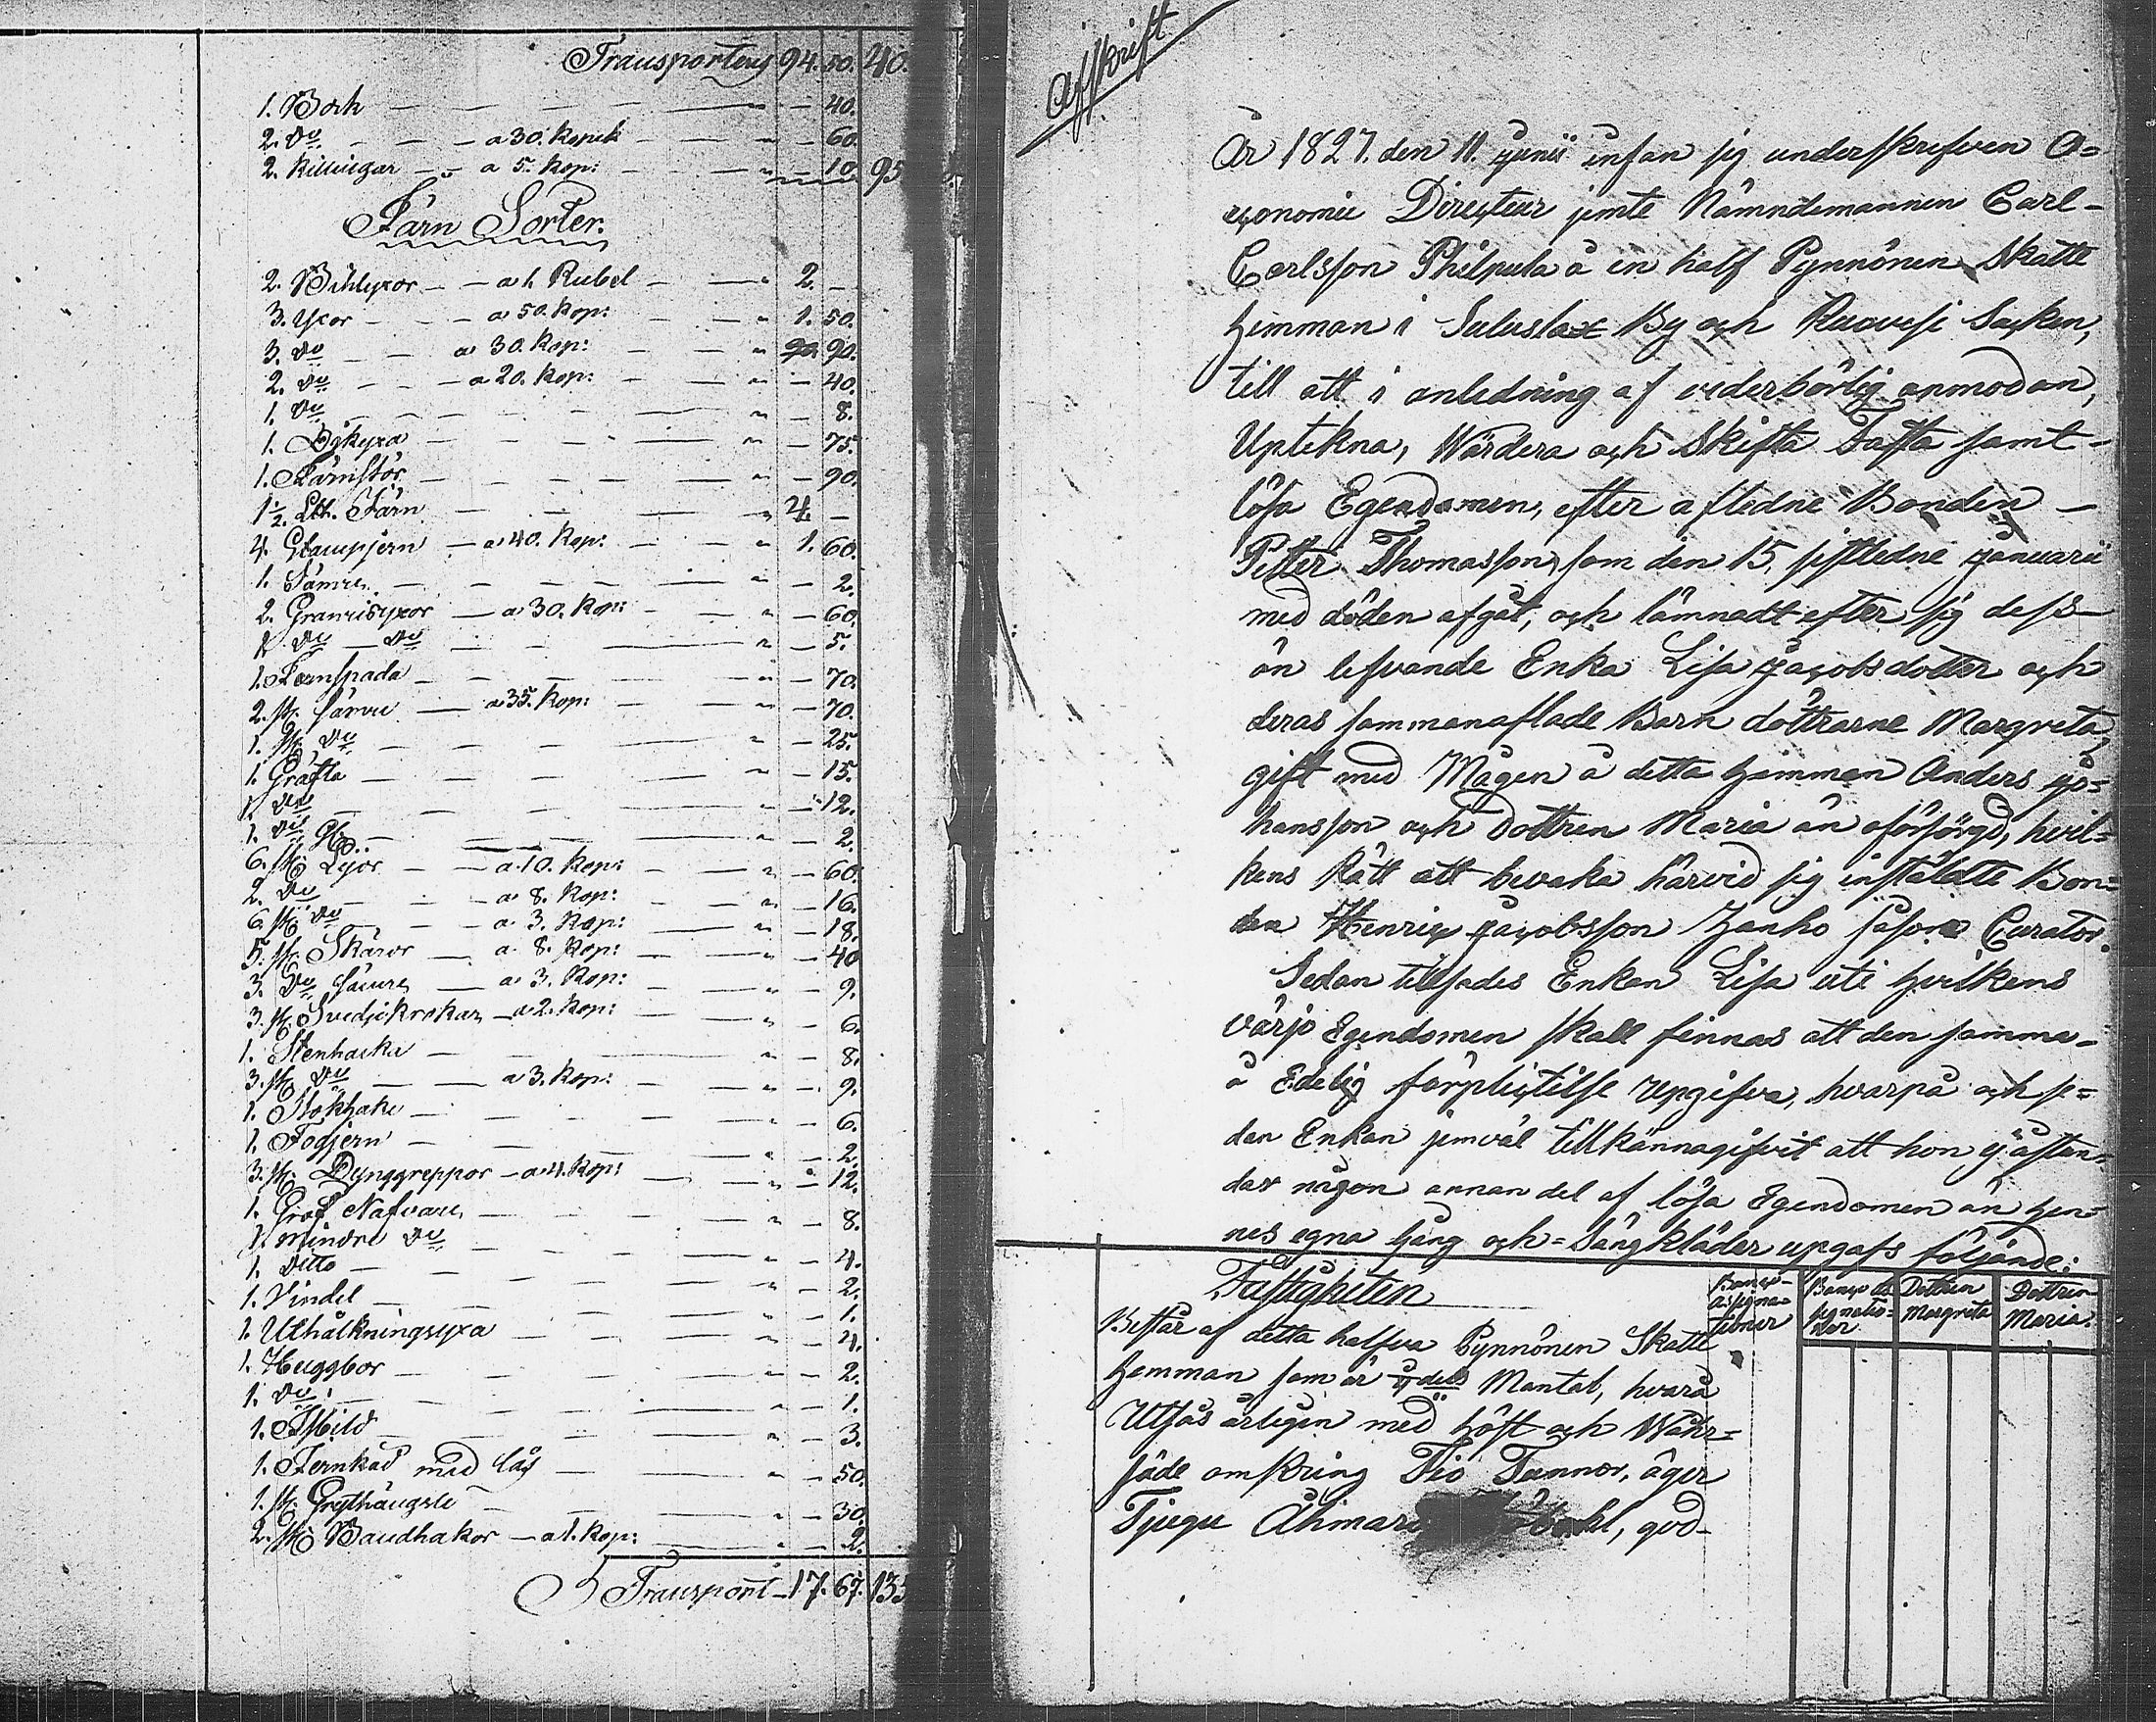 Transporteras 94. 50. 40.
1. Bock 40.
2. do a 30. kopek 60.
2. Killingar a 5. kop: 10. 95
Järn Sorter.
2. Bihlyxor a 1. Rubel 2. —
3. Yxor a 50. kop: 1. 50.
3. do a 30. kop: 90.
2. do a 20. kop: 40.
1. do 8.
1. Bihyxa 75.
1. Järnstör 90.
1½. Lth. Järn 4. —
4. Stampjern a 40. kop: 1. 60.
1. Sämre 2.
2. Granrisyxor a 30. kop: 60.
1. do do 5.
1. Jernspada 70.
2. st. sämre a 35. kop: 70.
1. st. do 25.
1. Gräfta 15.
1. do 12.
1. do 2.
6. st. Lijor a 10. kop: 60.
2. do a 8. kop: 16.
6. st. do a 3. kop: 18.
5. st. Skäror a 8. kop: 40
3. do sämre a 3. kop: 9.
3. st. Svedjekrokar a 2. kop: 6.
1. Stenhacka 8.
3. st. do a 3. kop: 9.
1. Stokhake 6.
1. Fogjern 2.
3. st. Dynggreppor a 4. kop: 12.
1. Grof Nafvare 8.
1. mindre do 4.
1. ditto 2.
1. Vindel 1.
1. Uthålkningsyxa 4.
1. Huggbor 2.
1. do 1.
1. 3.
1. Jernkäd med lås 50.
1. st. Grythängsle 30.
2. st. Bandhakor a 1. kop: 2.
Transport 17. 67. 135
Afskrift
År 1827. den 11. Junii infan sig underskrefven O=
economie Directeur jemte Nämndemannen Carl
Carlsson Philpula å en half Pynnönen Skatte
Hemman i Buy och Ruovesi Socken,
till att i anledning af vederbörlig anmodan,
Uptekna, Wärdera och Skifta Fasta samt
lösa Egendomen, efter afledne Bonden —
Petter Thomasson, som den 15. sistledne Januarii
med döden afgåt, och lämnadt efter sig dess
än lefvande Enka Lisa Jacobsdotter och
deras sammanaflade Barn döttrarne Margreta
gift med Mågen å detta Hemman Anders Jo=
hansson och Dottren Maria än oförsörgd, hvil=
kens Rätt att bevaka härvid sig instälde Bon=
den Henric Jacobsson Hanho såsom Curator.
Sedan tillsades Enkan Lisa uti Hvilkens
värjo Egendomen skall finnas att den samma
å Edelig förplictelse Upgifva, hvarpå och se=
dan Enkan jemväl tillkännagifvit att hon ej åstun=
dar någon annan del af lösa Egendomen än Hen=
nes egna Gång och Sängkläder upgafs följande:
Fastigheten
Banco Assignationer Banco Assignationer Dottren Margreta Dottren Maria.
Består af detta halfva Pynnönen Skatte
Hemman som är Mantal, hvarå
Utsås årligen med höst och Wåhr=
säde omkring Tio Tunnor, äger
Tjugu Åhmars god